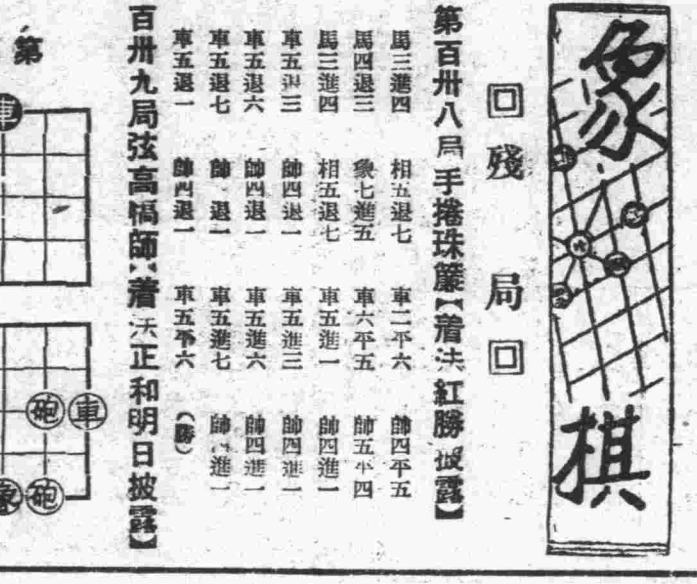 象棋
回殘局回
第百卅八局手捲珠簾【着法紅勝披露】
馬三進四 相五退七 車二平六 帥四平五
馬四退三 象七進五 車六平五 帥五平四
馬三進四 相五退七 車五進一 帥四進一
車五退三 帥四退一 車五進三 帥四進一
車五退六 帥四退一 車五進六 帥四進一
車五退七 帥 退一 車五進七 帥 進一
車五退一 帥四退一 車五平六 (勝)
百卅九局弦高犒師【着法正和明日披露】
第
車
砲 車
砲